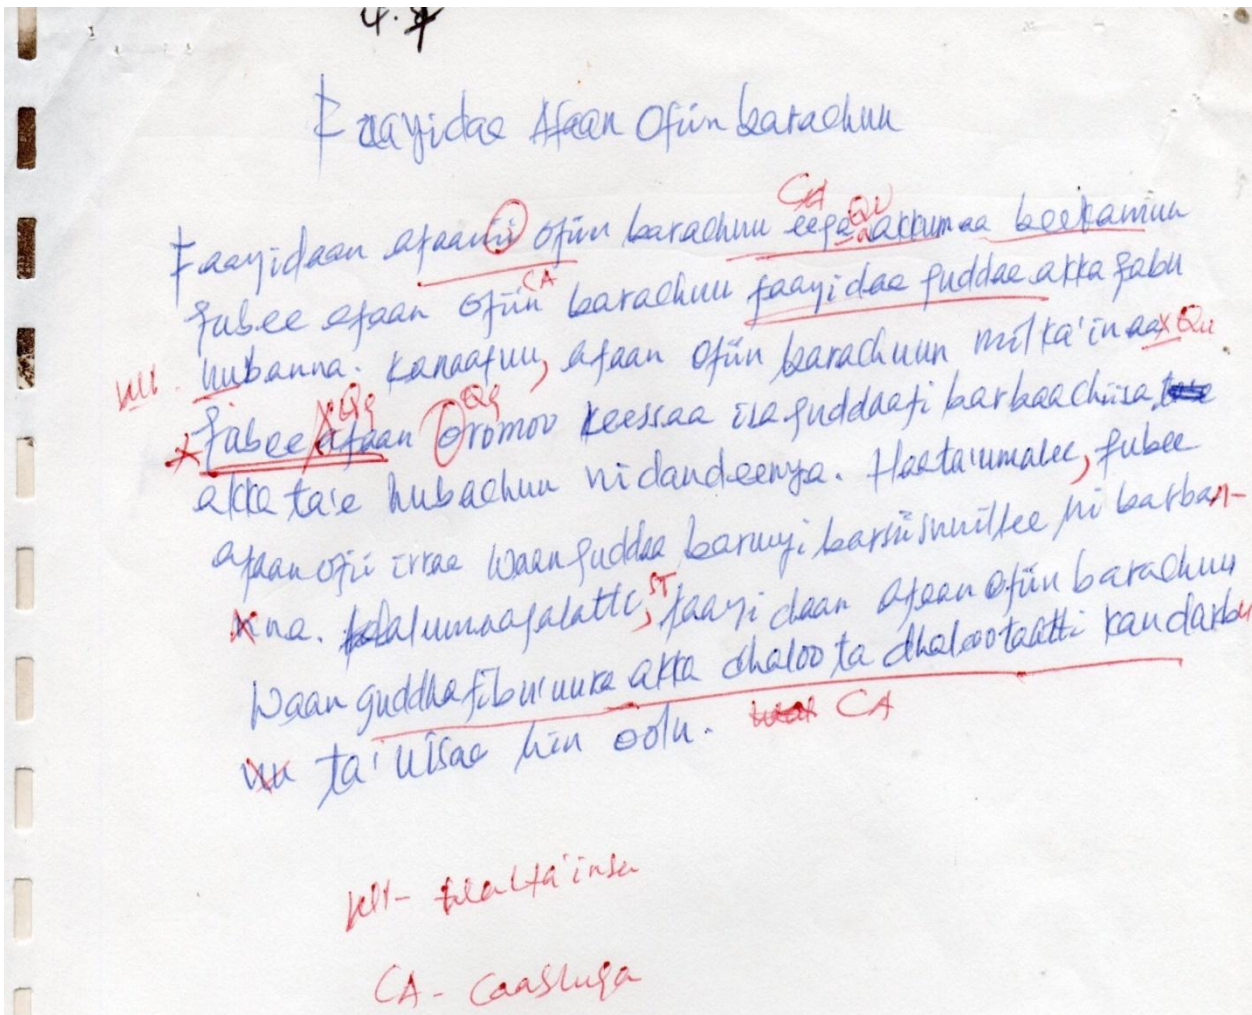 4.7
Faayidaa Afaan Ofiin barachuu
CA Qu
Faayidaan afaanii ofiin barachuu eega akkumaa beekamuu
CA
fubee afaan ofiin barachuu faayidaa guddaa akka qabu
hubanna. Kanaafuu, afaan ofiin barachuun milka'inaa x Qu
Qq Qq
x fubee afaan Oromoo keessaa isa guddaafi barbaachisa
akka ta'e hubachuu nidandeenya. Haata'umalee, fubee
afaanofii irraa waanguddaa baruufi barsiisuuillee ni barban-
na. ST faayidaan afaan ofiin barachuu
Waan guddhafibu'uura akka dhaloota dhalootaatti kandarbu
ta'uisaa hin oolu. CA
CA - Caasluga